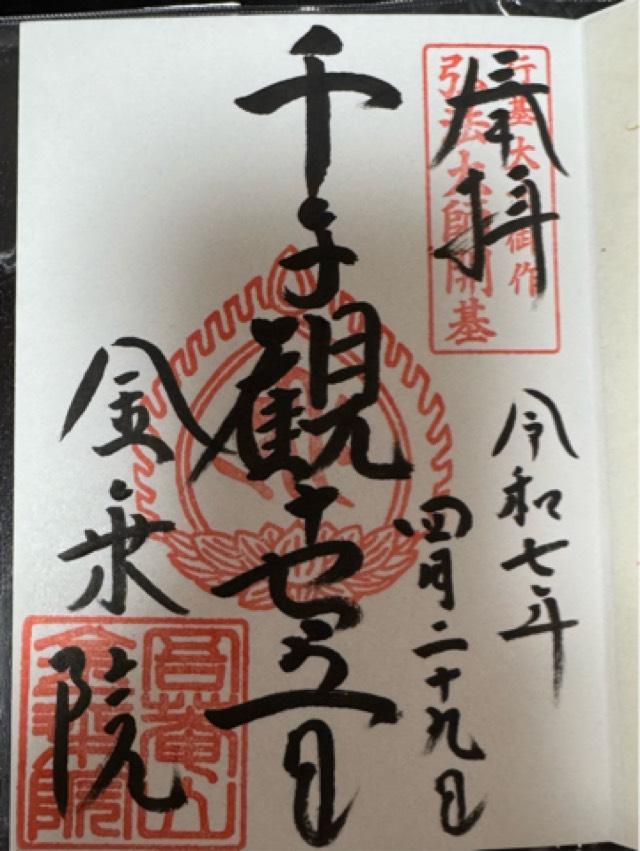 行基大御作
弘法大師開基
奉拝
令和七年
四月二十九日
千手観世音
金乗院
吾庵山
金乗院